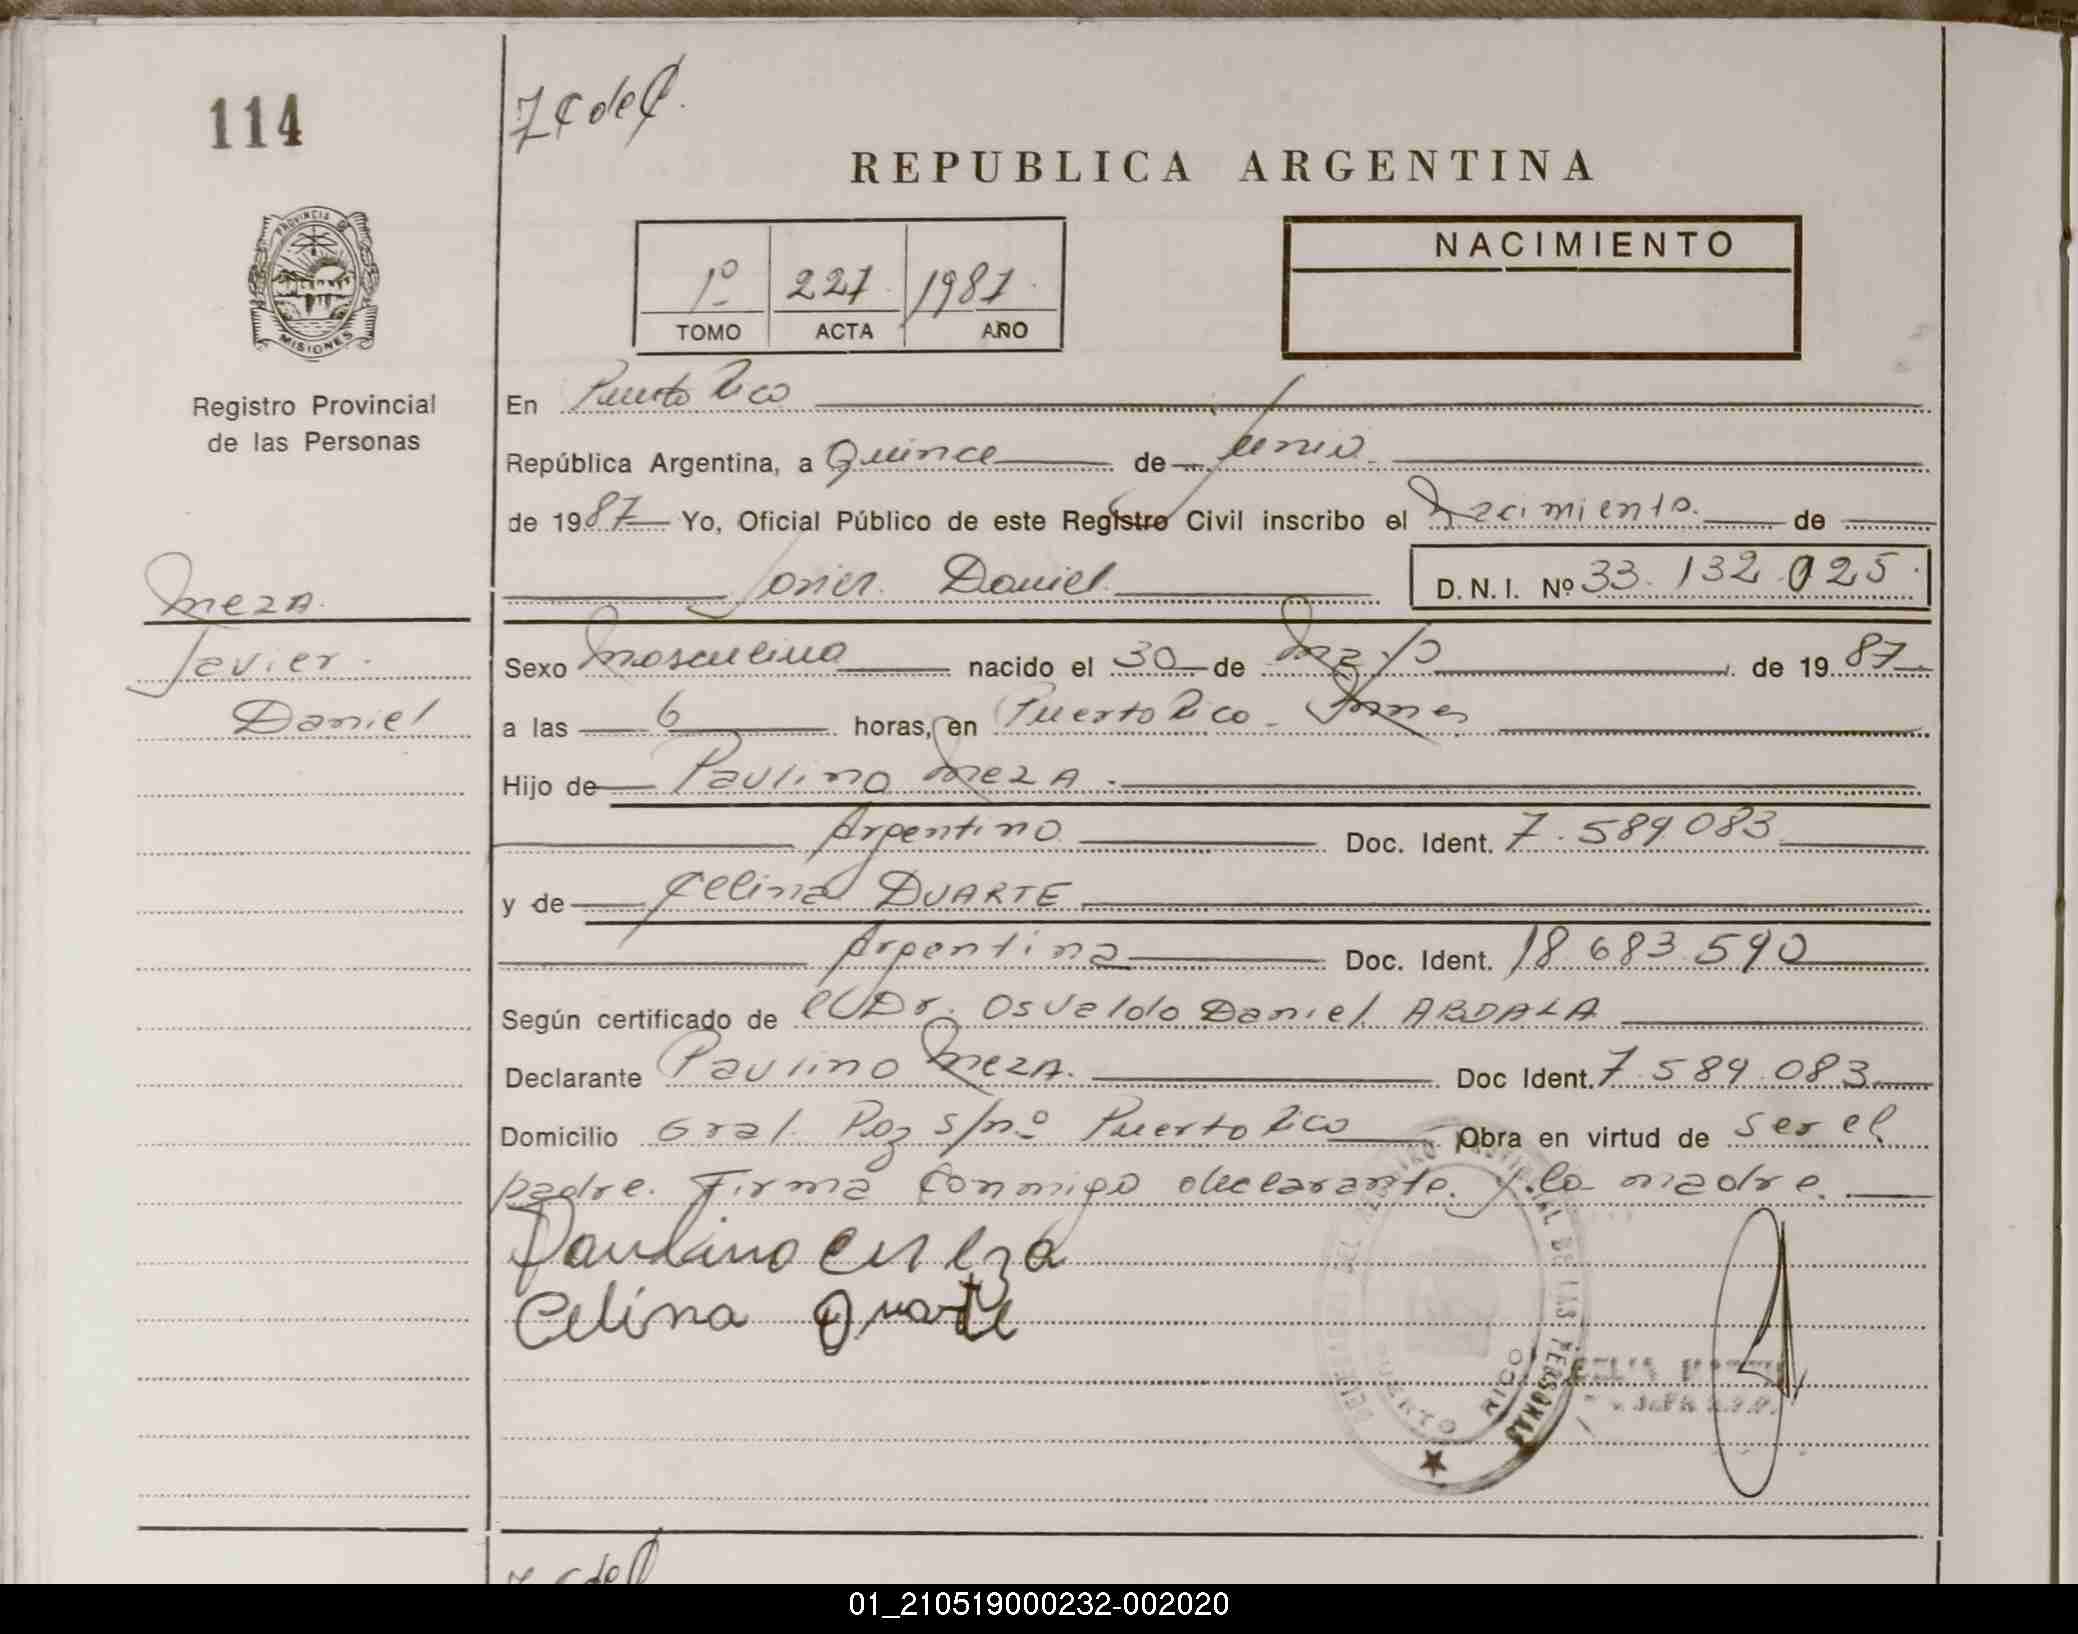 114
7 C de C.
REPUBLICA ARGENTINA
PROVINCIA DE
MISIONES
1º 227 1987
TOMO ACTA AÑO
NACIMIENTO
Registro Provincial
de las Personas
En Puerto Rico
República Argentina, a Quince de Junio
de 1987 Yo, Oficial Público de este Registro Civil inscribo el Nacimiento de
Javier Daniel D.N.I. Nº 33.132.025
MEZA
Javier
Daniel
Sexo Masculino nacido el 30 de Mayo de 1987
a las 6 horas, en Puerto Rico - Mnes
Hijo de Paulino MEZA
Argentino Doc. Ident. 7.589.083
y de Celina DUARTE
Argentina Doc. Ident. 18.683.590
Según certificado de el Dr. Osvaldo Daniel ABDALA
Declarante Paulino MEZA. Doc Ident. 7.589.083
Domicilio Gral. Paz s/nº Puerto Rico Obra en virtud de ser el
padre. Firma conmigo declarante y la madre.
Paulino Meza
Celina Duarte
REGISTRO PROVINCIAL DE LAS PERSONAS
PUERTO RICO
01_210519000232-002020